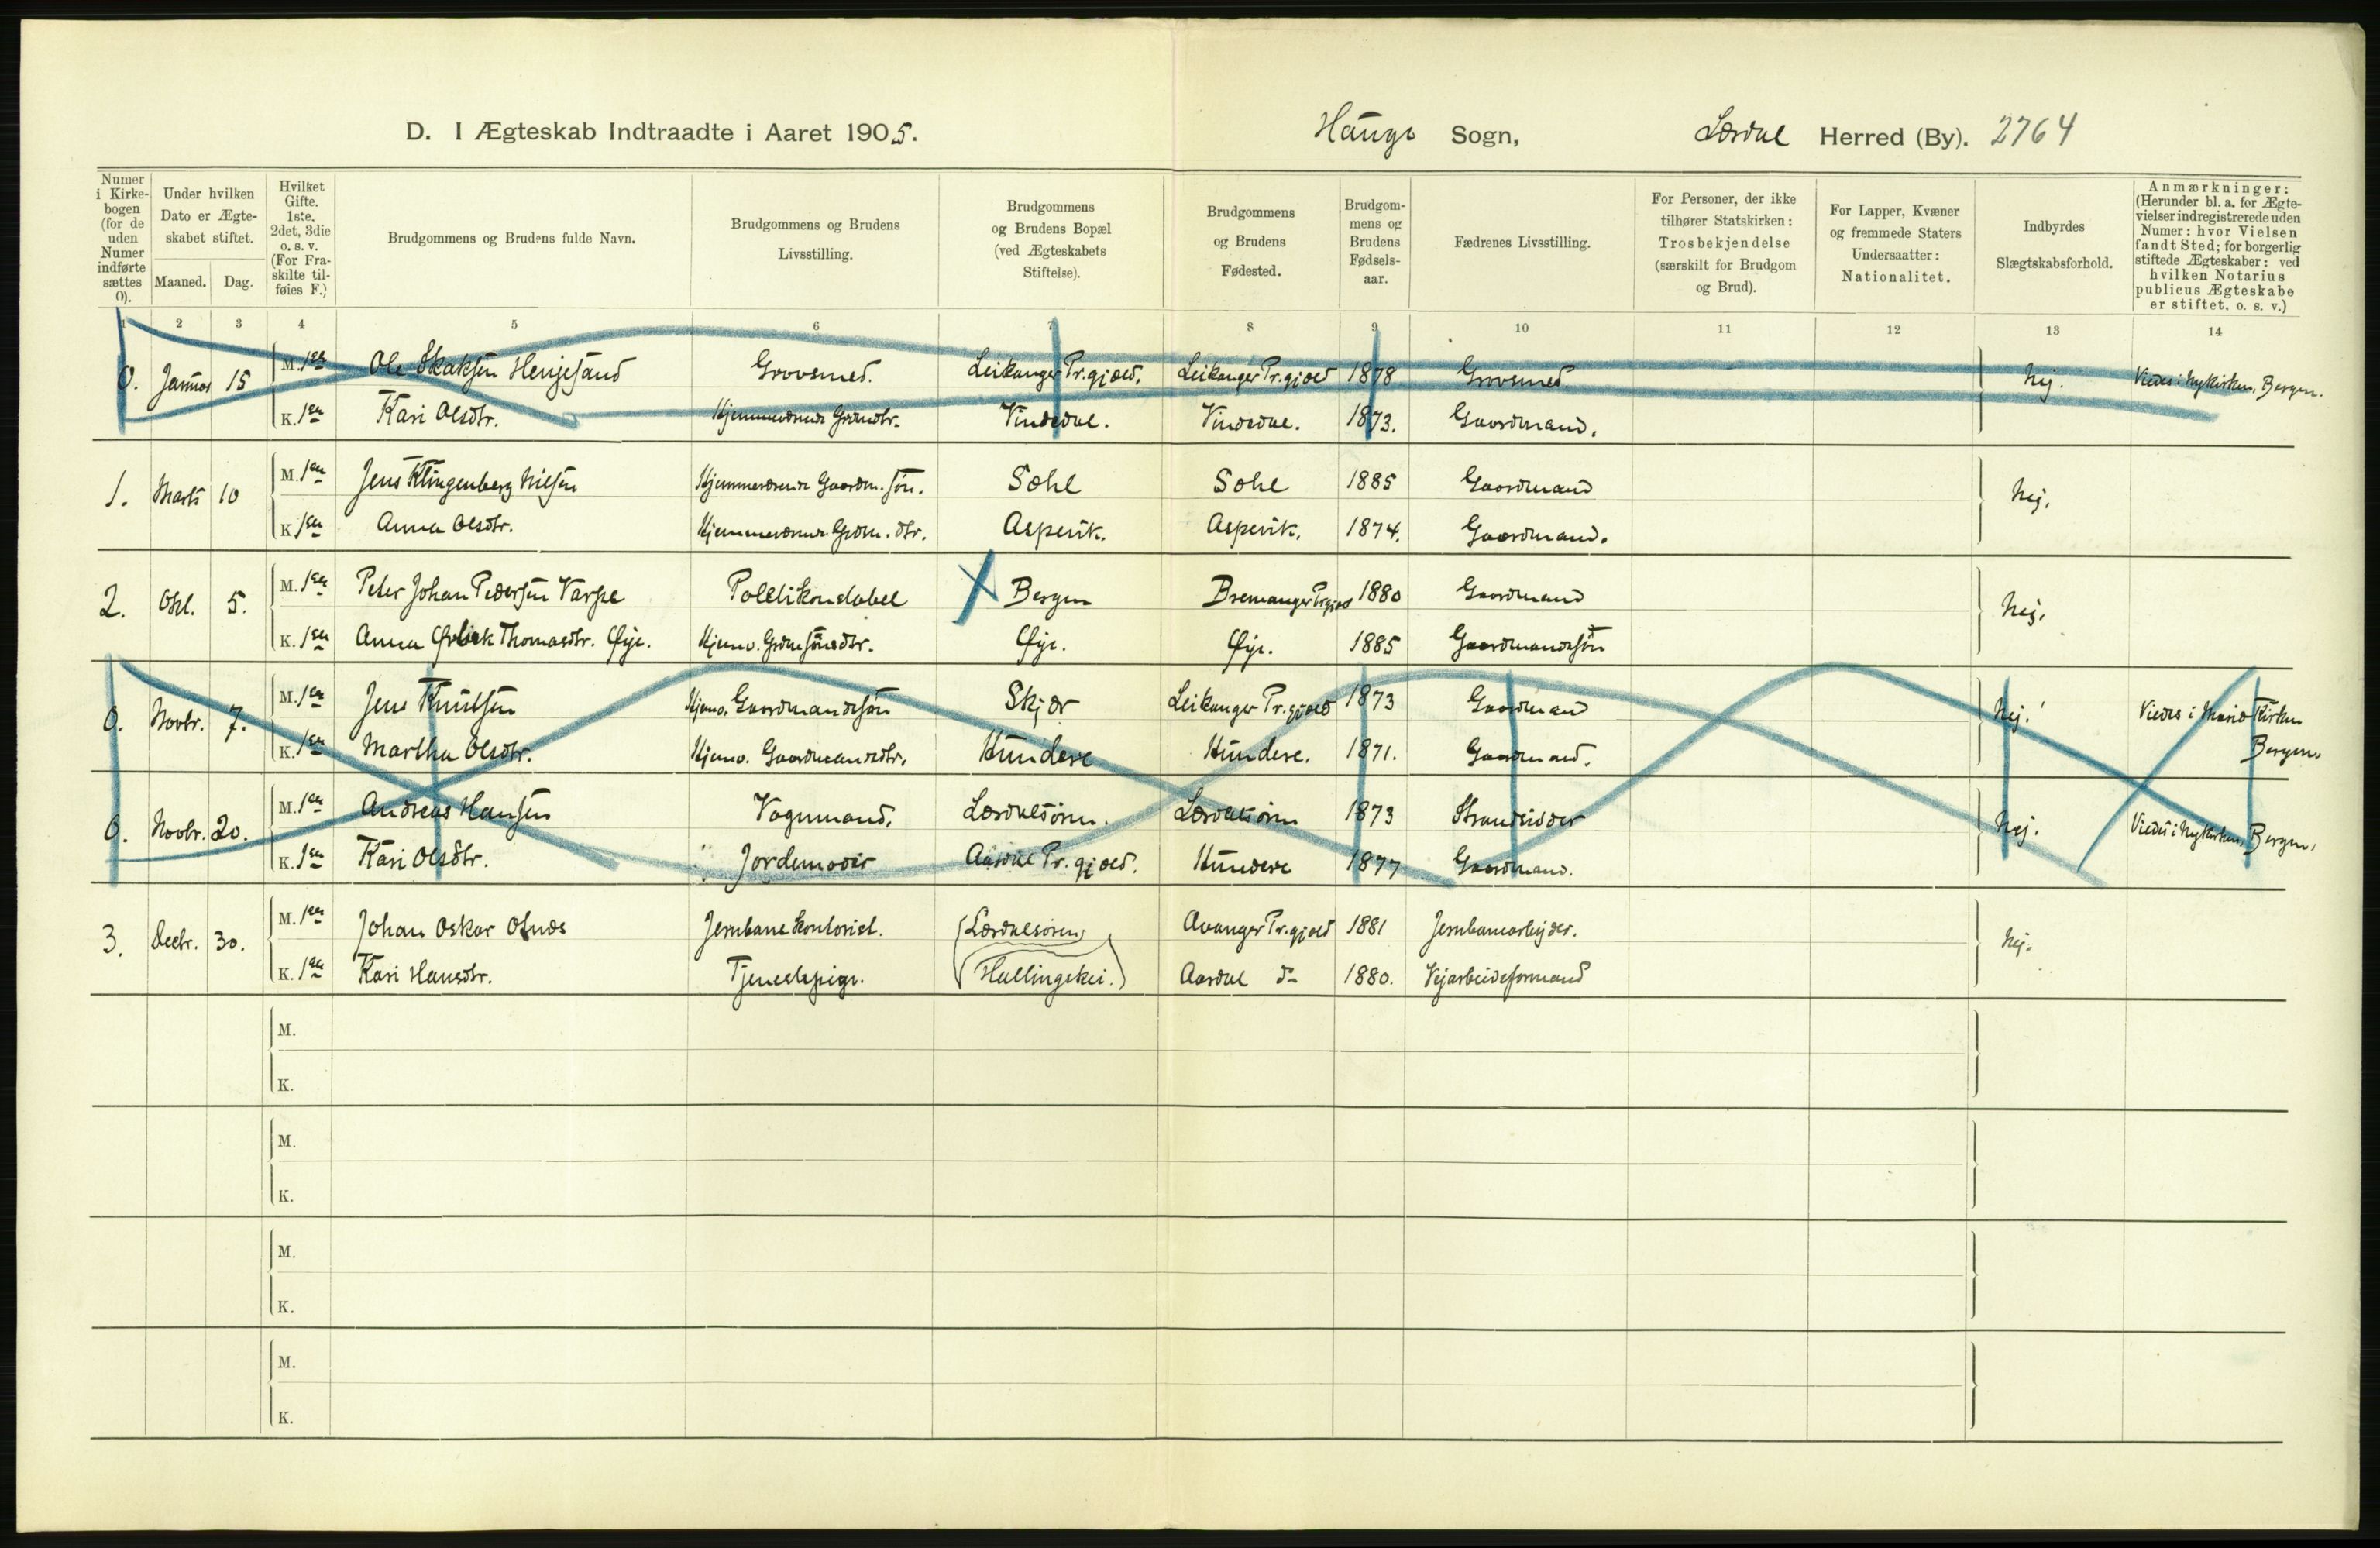 D. I Ægteskab Indtraadte i Aaret 1905. Hauge Sogn, Lærdal Herred (By). 2764
Numer i Kirkebogen (for de uden Numer indførte sættes 0).
Under hvilken Dato er Ægteskabet stiftet.
Maaned. Dag.
Hvilket Gifte. 1ste, 2det, 3die o. s. v. (For Fraskilte tilføies F.)
Brudgommens og Brudens fulde Navn.
Brudgommens og Brudens Livsstilling.
Brudgommens og Brudens Bopæl (ved Ægteskabets Stiftelse).
Brudgommens og Brudens Fødested.
Brudgommens og Brudens Fødselsaar.
Fædrenes Livsstilling.
For Personer, der ikke tilhører Statskirken: Trosbekjendelse (særskilt for Brudgom og Brud).
For Lapper, Kvæner og fremmede Staters Undersaatter: Nationalitet.
Indbyrdes Slægtskabsforhold.
Anmærkninger: (Herunder bl. a. for Ægtevielser indregistrerede uden Numer: hvor Vielsen fandt Sted; for borgerlig stiftede Ægteskaber: ved hvilken Notarius publicus Ægteskabe er stiftet, o. s. v.)
1 2 3 4 5 6 7 8 9 10 11 12 13 14
0. Januar 15 M. 1ste Ole Skaksen Henjesand Grovsmed. Leikanger Pr.gjæld. Leikanger Pr.gjæld 1878 Grovsmed. Nej. Viedes i Nykirken, Bergen.
K. 1ste Kari Olsdtr. Hjemmeværende Grdmdtr. Vindedal. Vindedal. 1873. Gaardmand.
1. Marts 10 M. 1ste Jens Klingenberg Nilsen Hjemmeværende Gaardm. søn. Sæhl Sæhl 1885 Gaardmand Nej.
K. 1ste Anna Olsdtr. Hjemmeværende Grdm. dtr. Aspevik. Aspevik. 1874. Gaardmand.
2. Okt. 5. M. 1ste Peter Johan Pedersen Varpe Politikonstabel Bergen Bremanger Prgjæld 1880 Gaardmand Nej.
K. 1ste Anna Thomasdtr. Øye. Hjemv. Grdmsønsdtr. Øye. Øye. 1885 Gaardmandssøn
0. Novbr. 7. M. 1ste Jens Knutsen Hjemv. Gaardmandssøn Skjær Leikanger Pr.gjæld 1873 Gaardmand Nej. Viedes i Mariakirken
K. 1ste Martha Olsdtr. Hjemv. Gaardmandsdtr. Hundere Hundere. 1871. Gaardmand. Bergen.
0. Novbr. 20. M. 1ste Andreas Hansen Vognmand. Lærdalsøren. Lærdalsøren 1873 Strandsidder Nej. Viedes i Nykirken, Bergen.
K. 1ste Kari Olsdtr. Jordemoder Aardal Pr.gjæld. Hundere 1877 Gaardmand.
3. Decbr. 30. M. 1ste Johan Oskar Ofnæs Jernbanekontorist. (Lærdalsøren) Avanger Pr.gjæld 1881 Jernbanearbejder. Nej.
K. 1ste Kari Hansdtr. Tjenestepige. (Hallingskei.) Aardal do 1880. Vejarbeidsformand
M.
K.
M.
K.
M.
K.
M.
K.